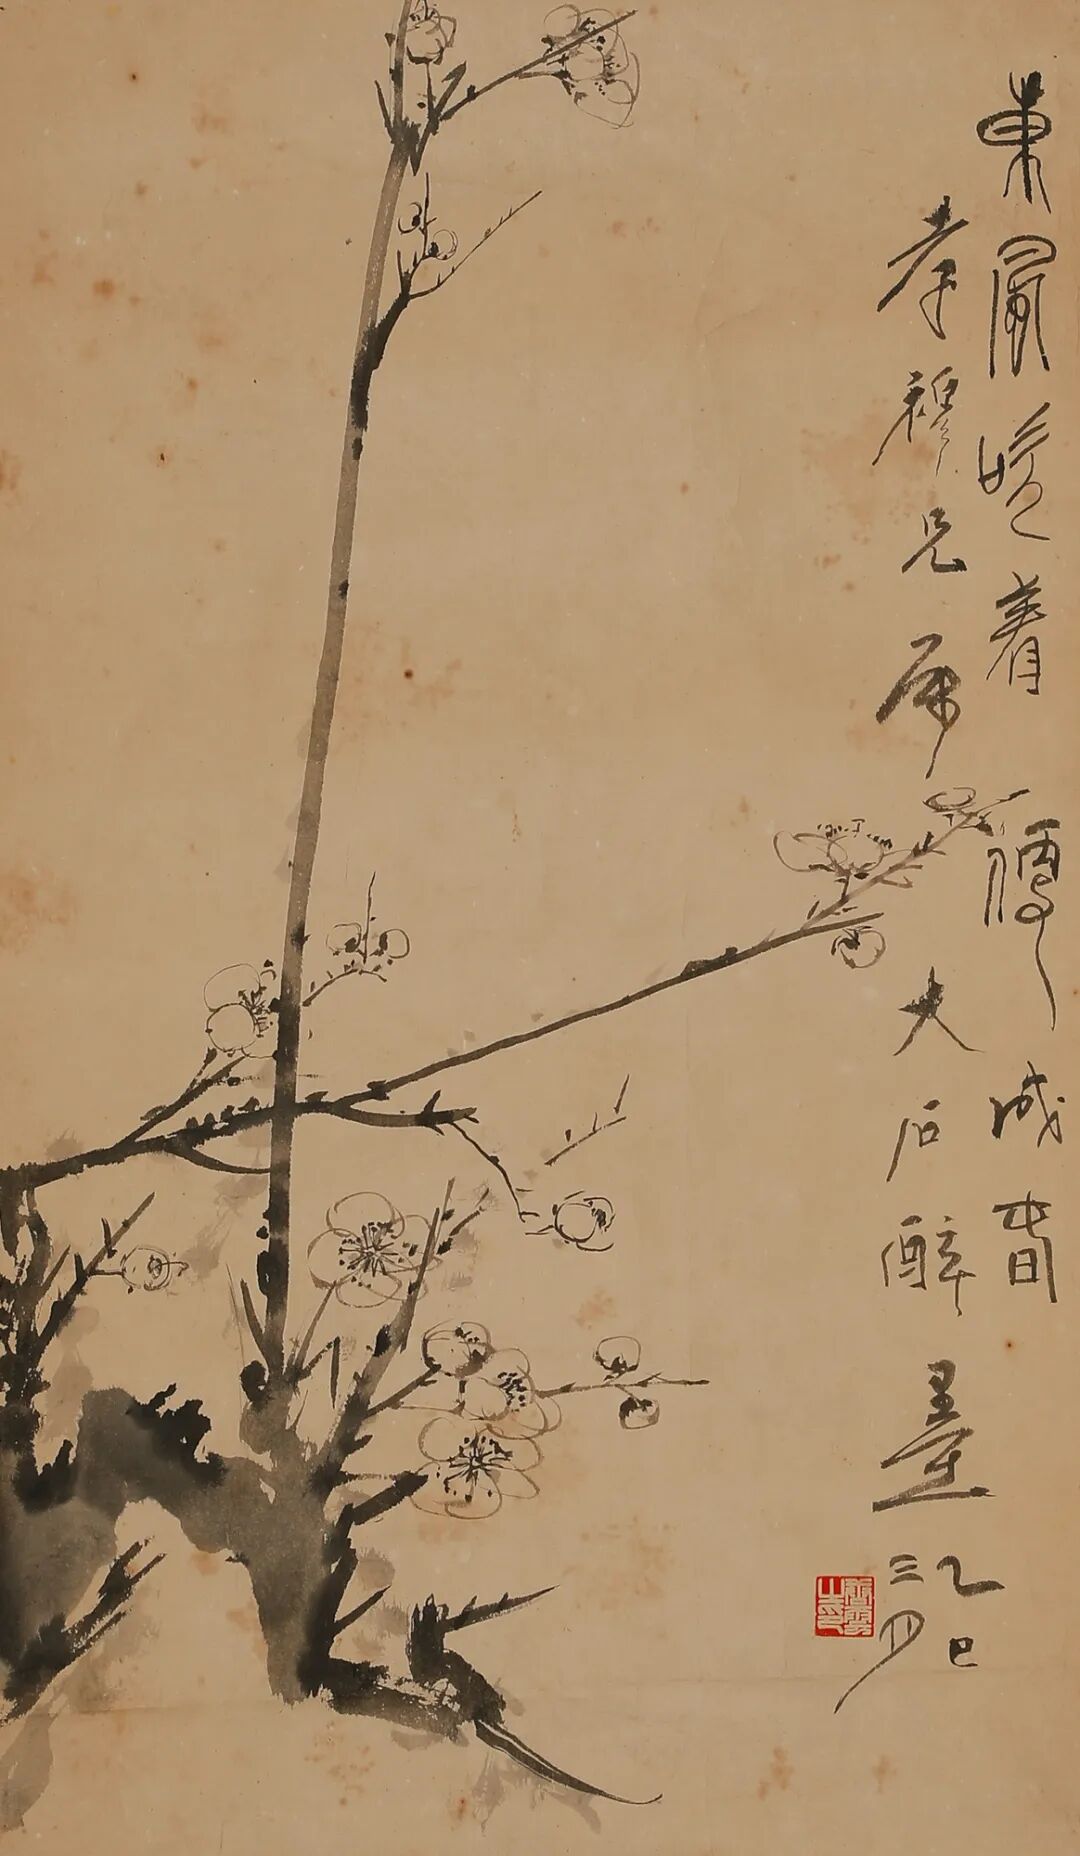 東風吹着便成春
孝穆兄属 大石醉墨 乙巳
三月